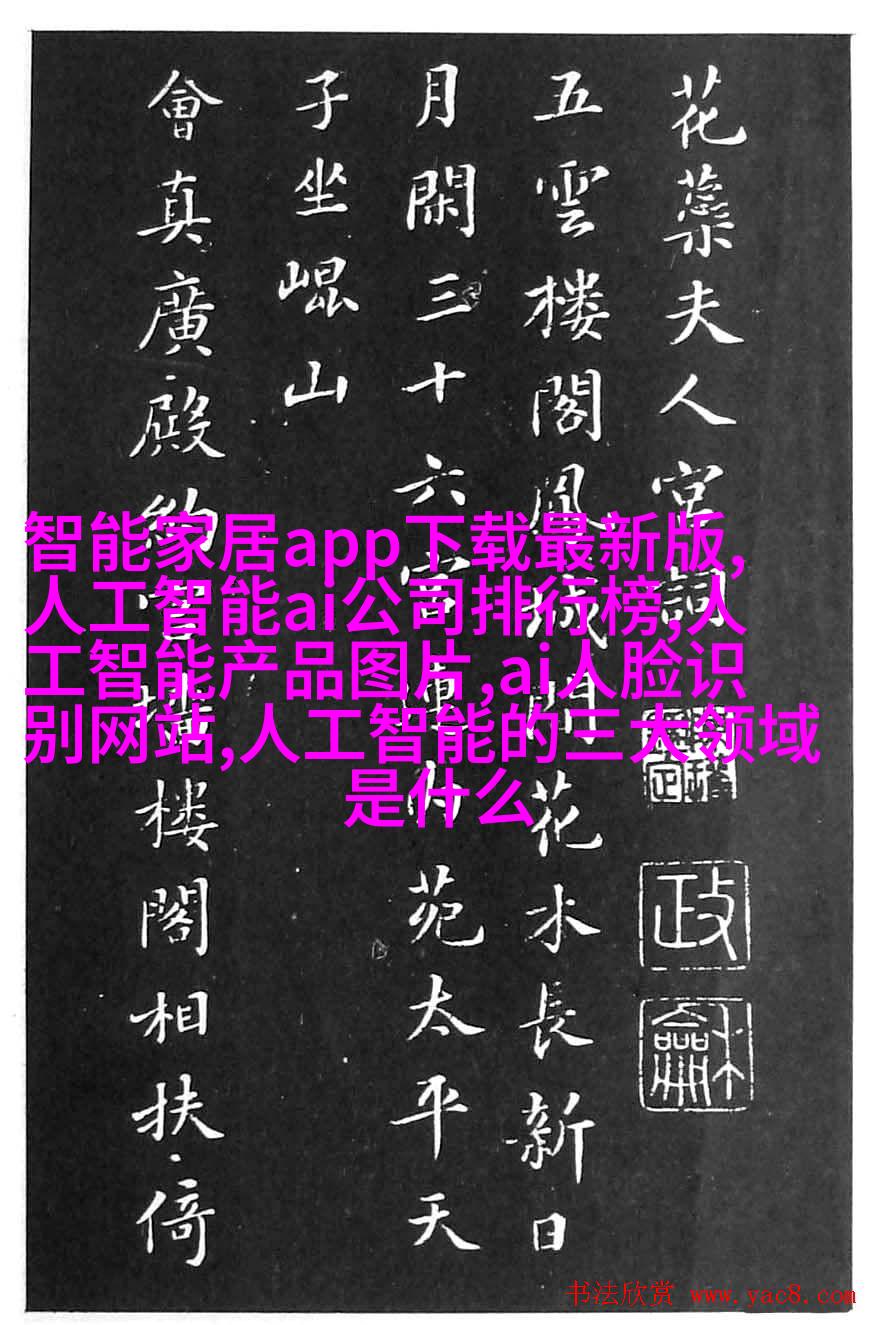 花蘂夫人宮詞
政
龢
五雲樓閣鳳城間花水長新日
月閑三十六宮連內苑太平天
子坐崐山
會真廣殿約宮墻樓閣相扶倚
智能家居app下载最新版,
人工智能ai公司排行榜,人
工智能产品图片,ai人脸识
别网站,人工智能的三大领域
是什么
书法欣赏 www.yac8.com